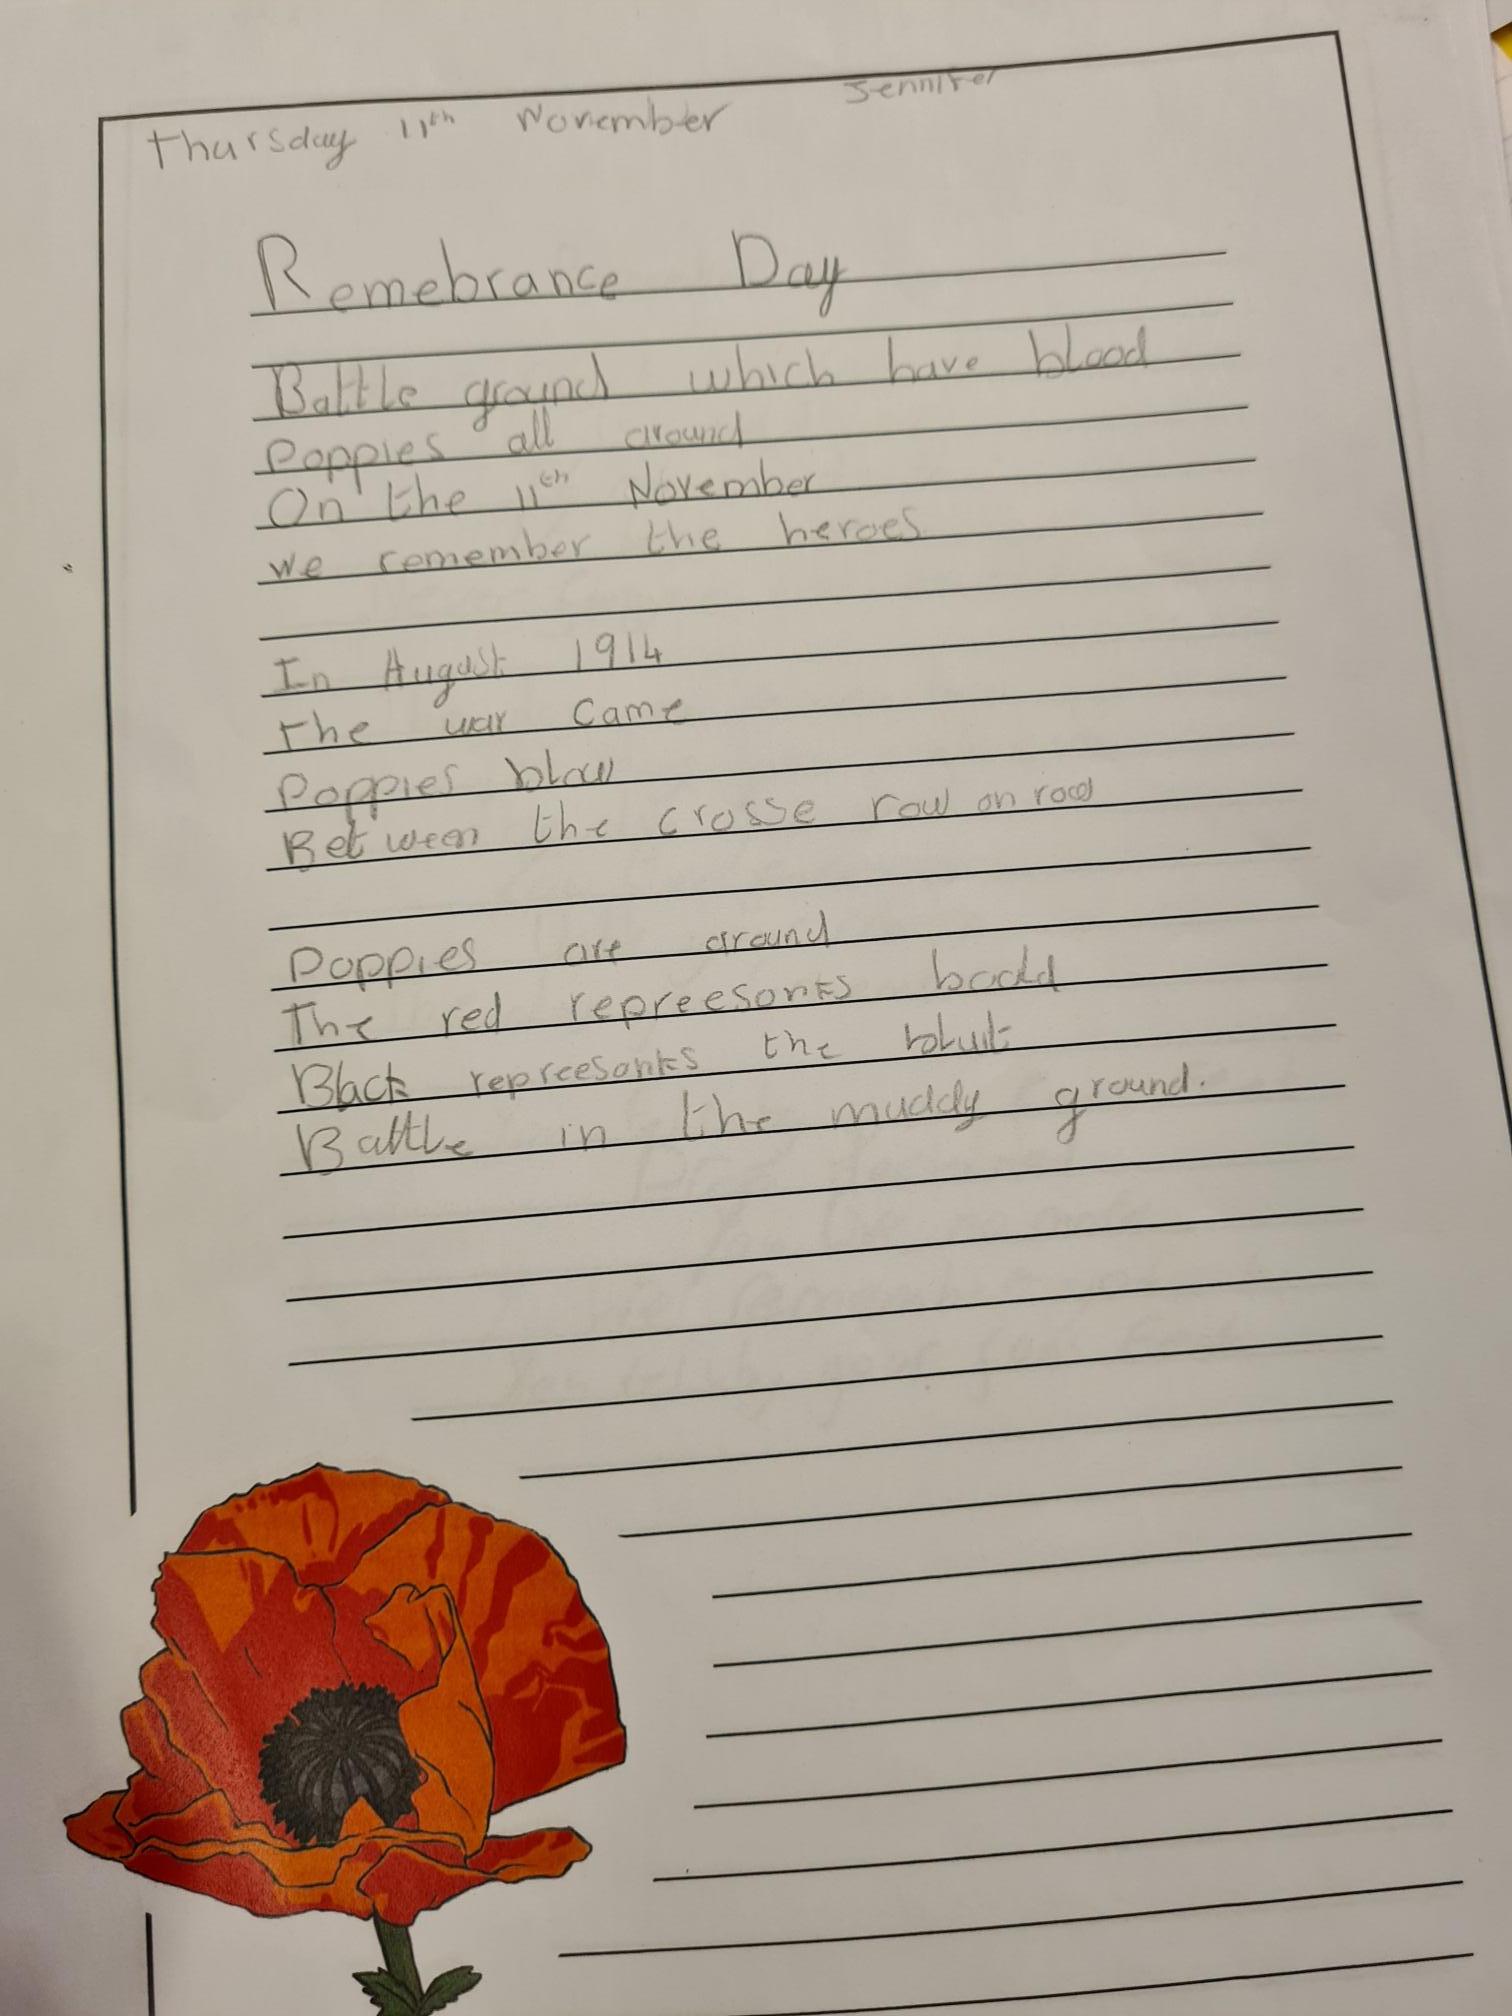 Thursday 11th November Jennifer
Remebrance Day
Battle ground which have blood
Poppies all around
On the 11th November
we remember the heroes
In August 1914
the war came
Poppies blow
Between the crosse row on row
Poppies are around
The red repreesonts
Black repreesonts the
Battle in the muddy ground.